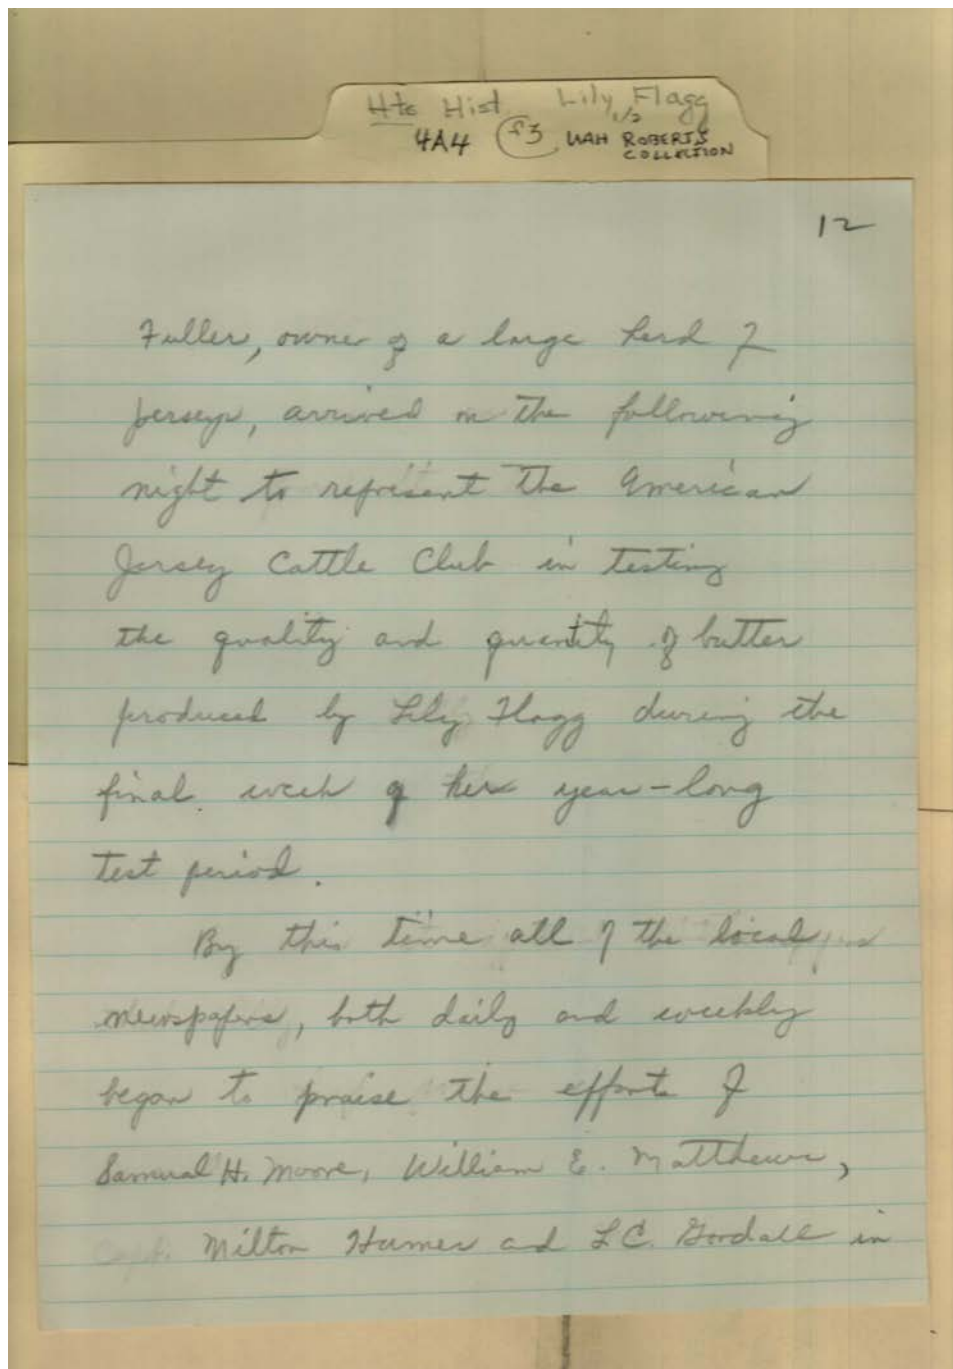 Hts Hist Lily Flagg
1/2
4A4 f3 UAH ROBERTS
COLLECTION
12
Fuller, owner of a large herd of
Jerseys, arrived on the following
night to represent the American
Jersey Cattle Club in testing
the quality and quantity of butter
produced by Lily Flagg during the
final week of her year-long
test period.
By this time all of the local
newspapers, both daily and weekly
began to praise the efforts of
Samual H. Moore, William E. Matthews,
Milton Humes and L.C. Gordall in